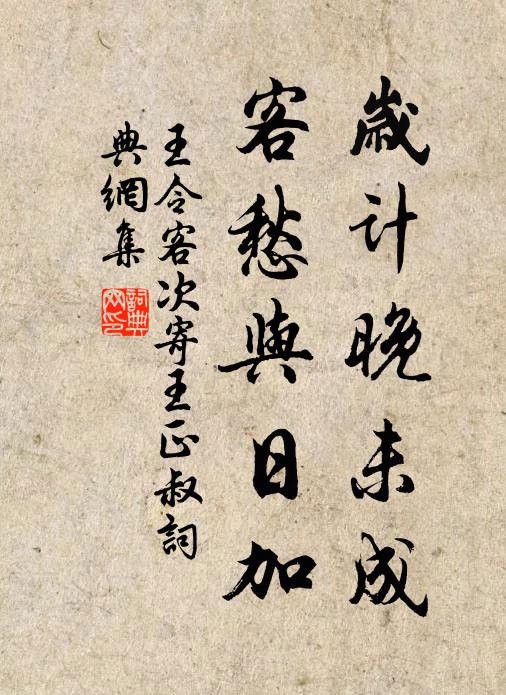 歲计晚未成
客愁與日加
王令客次寄王正叔詞
典網集
詞典
网印